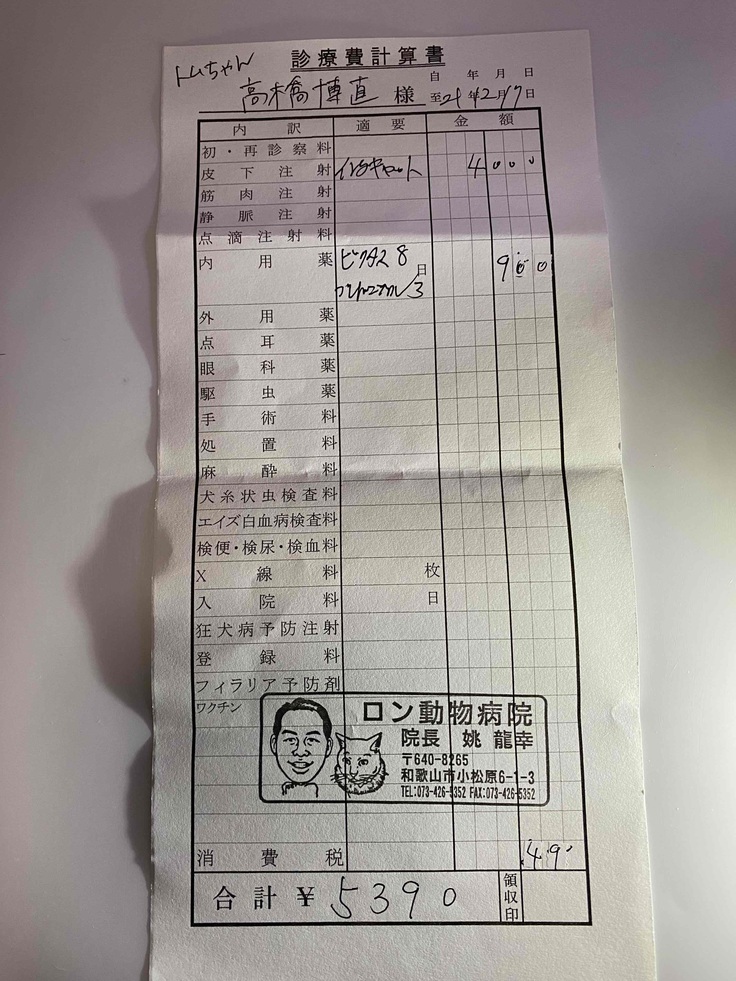 トムちゃん
診療費計算書
自 年 月 日
高橋博直 様 至21年2月17日
内訳 適要 金額
初・再診察料
皮下注射 4000
筋肉注射
静脈注射
点滴注射料
内用薬 ビクタス8日 900
3
外用薬
点耳薬
眼科薬
駆虫薬
手術料
処置料
麻酔料
犬糸状虫検査料
エイズ白血病検査料
検便・検尿・検血料
X線料 枚
入院料 日
狂犬病予防注射
登録料
フィラリア予防剤
ワクチン
ロン動物病院
院長 姚 龍幸
〒640-8265
和歌山市小松原6-1-3
TEL:073-426-5352 FAX:073-426-5352
消費税 49
合計 ¥ 5390 領収印